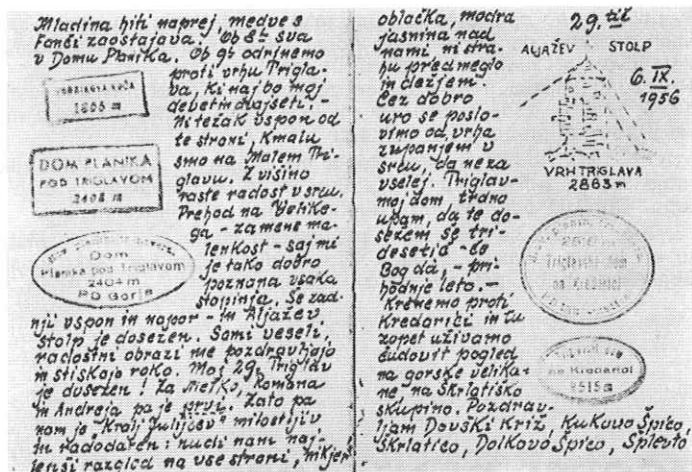 Mladina hiti naprej, medve s
Fanči zaostajava. Ob 8½ sva
v Domu Planika. Ob 9½ odrinemo
proti vrhu Trigla-
va, ki naj bo moj
devetindvajseti! -
Ni težak vspon od
te strani, kmalu
smo na Malem Tri-
glavu. Z višino
raste radost v srcu.
Prehod na Velike-
ga - za mene ma-
lenkost - saj mi
je tako dobro
poznana vsaka
stopinja. Še zad-
nji vspon in napor - in Aljažev
stolp je dosežen. Sami veseli,
radostni obrazi me pozdravljajo
in stiskajo roko. Moj 29. Triglav
je dosežen! Za Metko, Romana
in Andreja pa je prvi. Zato pa
nam je "Kralj Julijcev" milostljiv
in radodaren: nudi nam naj-
lepši razgled na vse strani, nikjer
2805 m
DOM PLANIKA
POD TRIGLAVOM
2404 m
Dom
Planika pod Triglavom
2404 m
PD Gorje
oblačka, modra
jasnina nad
nami ni stra-
hu pred meglo
in dežjem.
Čez dobro
uro se poslo-
vimo od vrha
z upanjem v
srcu, da ne za
vselej. Triglav-
moj dom, trdno
upam, da te do-
sežem še tri-
desetič - če
Bog da, - pri-
hodnje leto. -
Krenemo proti
Kredarici in tu
zopet uživamo
čudovit pogled
na gorske velika-
ne, na Škrlatiško
skupino. Pozdrav-
ljam Dovški Križ, Kukovo Špico,
Škrlatico, Dolkovo Špico, Šplevto,
29. tič
ALJAŽEV STOLP
6. IX.
1956
VRH TRIGLAVA
2863 m
Triglavski dom
na Kredarici
na Kredarici
2515 m